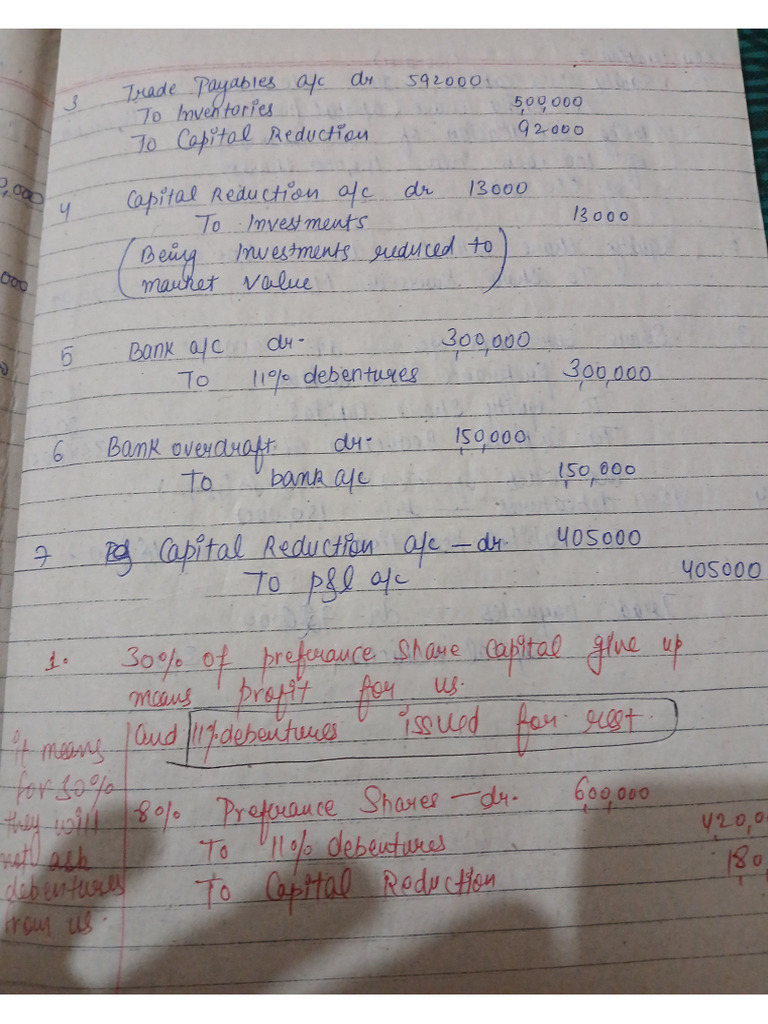 0,000
000
3 Trade Payables a/c dr 592000
To Inventories 500,000
To Capital Reduction 92000
4 Capital Reduction a/c dr 13000
To Investments 13000
(Being Investments reduced to
market value)
5 Bank a/c dr. 300,000
To 11% debentures 300,000
6 Bank overdraft dr. 150,000
To bank a/c 150,000
7 Capital Reduction a/c — dr. 405000
To p&l a/c 405000
1. 30% of preferance share capital give up
means profit for us.
and 11% debentures issued for rest.
it means
for 30%
they will
not ask
debentures
from us.
8% Preferance Shares — dr. 600,000
To 11% debentures 420,0
To Capital Reduction 180,